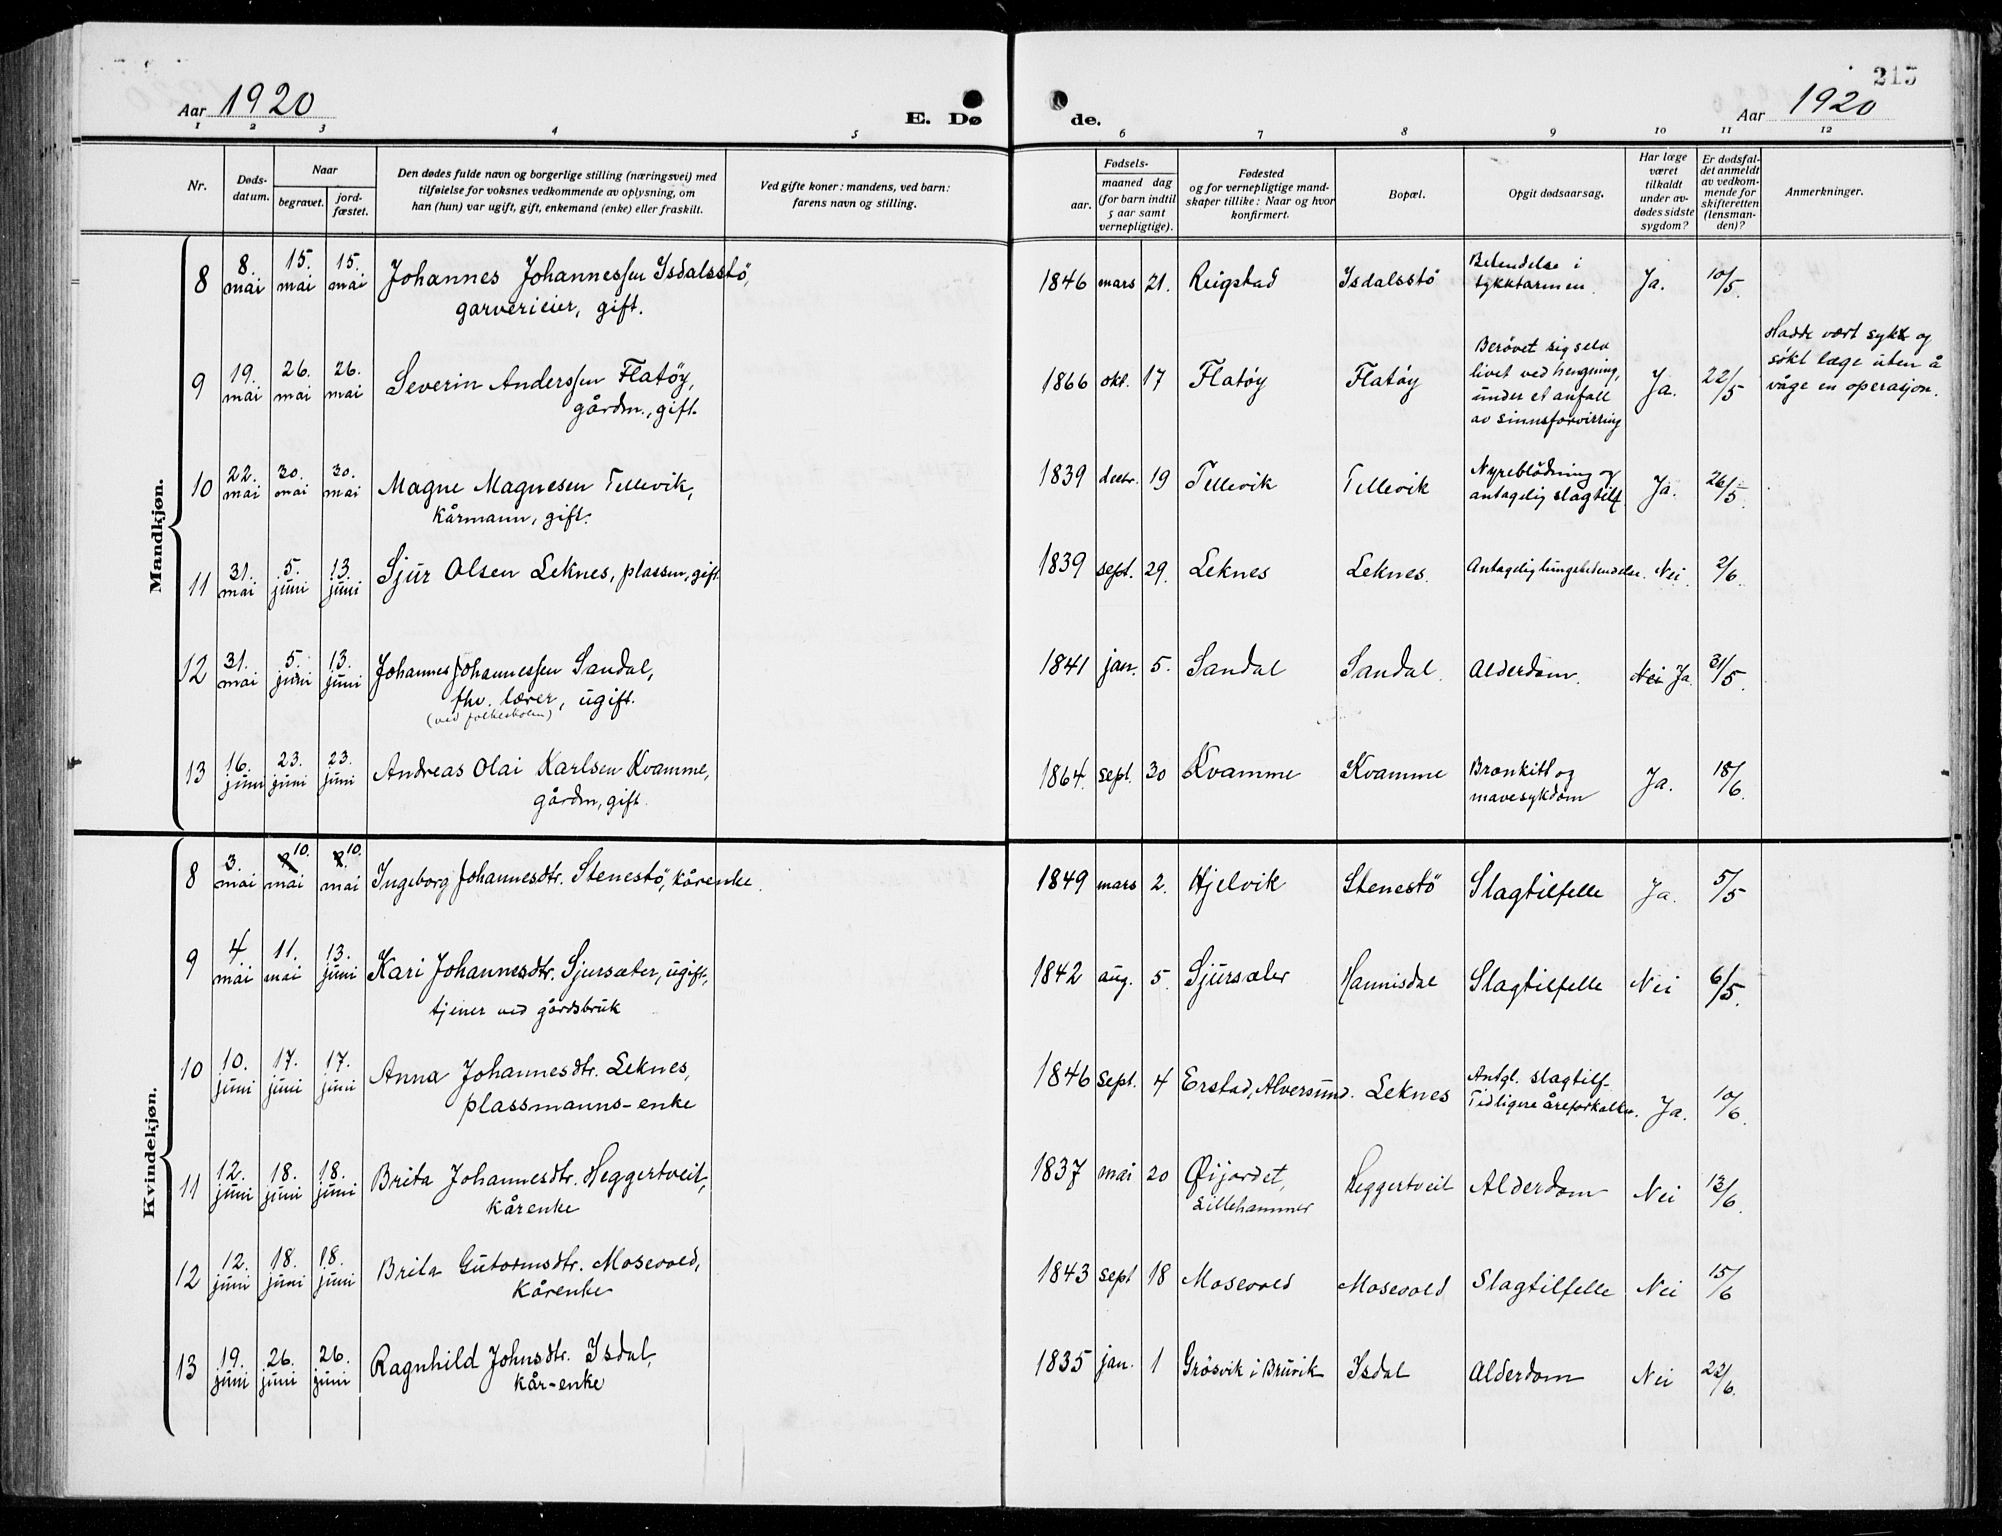 215
Aar 1920
E. Dø de.
Aar 1920
1 2 3 4 5 6 7 8 9 10 11 12
Nr.
Døds-
datum.
Naar
begravet.
jord-
fæstet.
Den dødes fulde navn og borgerlige stilling (næringsvei) med
tilføielse for voksnes vedkommende av oplysning, om
han (hun) var ugift, gift, enkemand (enke) eller fraskilt.
Ved gifte koner: mandens, ved barn:
farens navn og stilling.
Fødsels-
aar.
maaned dag
(for barn indtil
5 aar samt
vernepligtige).
Fødested
og for vernepligtige mand-
skaper tillike: Naar og hvor
konfirmert.
Bopæl.
Opgit dødsaarsag.
Har læge
været
tilkaldt
under av-
dødes sidste
sygdom?
Er dødsfal-
det anmeldt
av vedkom-
mende for
skifteretten
(lensman-
den)?
Anmerkninger.
Mandkjøn.
8 8. mai 15. mai 15. mai Johannes Johannessen Isdalsstö,
garverieier, gift.
1846 mars 21. Reigstad Isdalsstö Betendelse i
tykktarmen. Ja. 10/5.
9 19. mai 26. mai 26. mai Severin Anderssen Flatöy,
gårdm., gift.
1866 okt. 17 Flatöy Flatöy Berövet sig selv
livet ved hengning,
under et anfall
av sinnsforvirring Ja. 22/5
Hadde vært syk og
sökt læge uten å
våge en operasjon.
10 22. mai 30. mai 30. mai Magne Magnesen Tellevik,
kårmann, gift.
1839 decbr. 19 Tellevik Tellevik Nyreblödning og
antagelig slagtilf. Ja. 26/5.
11 31. mai 5. juni 13. juni Sjur Olsen Leknes, plassm, gift
1839 sept. 29. Leknes Leknes. Antagelig lungebetendelse. Nei. 2/6.
12 31. mai 5. juni 13. juni Johannes Johannessen Sandal,
fhv. lærer, ugift.
(ved folkeskolen)
1841 jan. 5. Sandal Sandal. Alderdom. Nei Ja. 31/5.
13 16. juni 23. juni 23. juni Andreas Olai Karlsen Kvamme,
gårdm, gift.
1864. sept. 30 Kvamme Kvamme Bronkitt og
mavesykdom Ja. 18/6.
Kvindekjøn.
8 3. mai 10. mai 10. mai Ingeborg Johannesdtr. Stenestö, kårenke.
1849 mars 2. Hjelvik Stenestö Slagtilfelle Ja. 5/5
9 4 mai 11. mai 13. juni Kari Johannesdtr. Sjursæter, ugift,
tjener ved gårdsbruk
1842 aug. 5. Sjursæter Hannisdal Slagtilfelle Nei 6/5.
10 10. juni 17. juni 17. juni Anna Johannesdtr. Leknes,
plassmanns-enke
1846 sept. 4 Erstad, Alversund. Leknes Antgl. slagtilf.
Tidligere åreforkalkn. Ja. 10/6.
11 12. juni 18. juni 18. juni Brita Johannesdtr. Heggertveit,
kårenke
1837 mai 20 Øijordet,
Lillehammer Heggertveit Alderdom Nei 13/6.
12 12. juni 18. juni 18. juni Brita Gutormsdtr. Mosevold,
kårenke
1843 sept 18 Mosevold Mosevold Slagtilfelle Nei 15/6
13 19. juni 26. juni 26. juni Ragnhild Johnsdtr. Isdal,
kår-enke
1835 jan. 1 Grösvik i Bruvik Isdal Alderdom Nei 22/6.